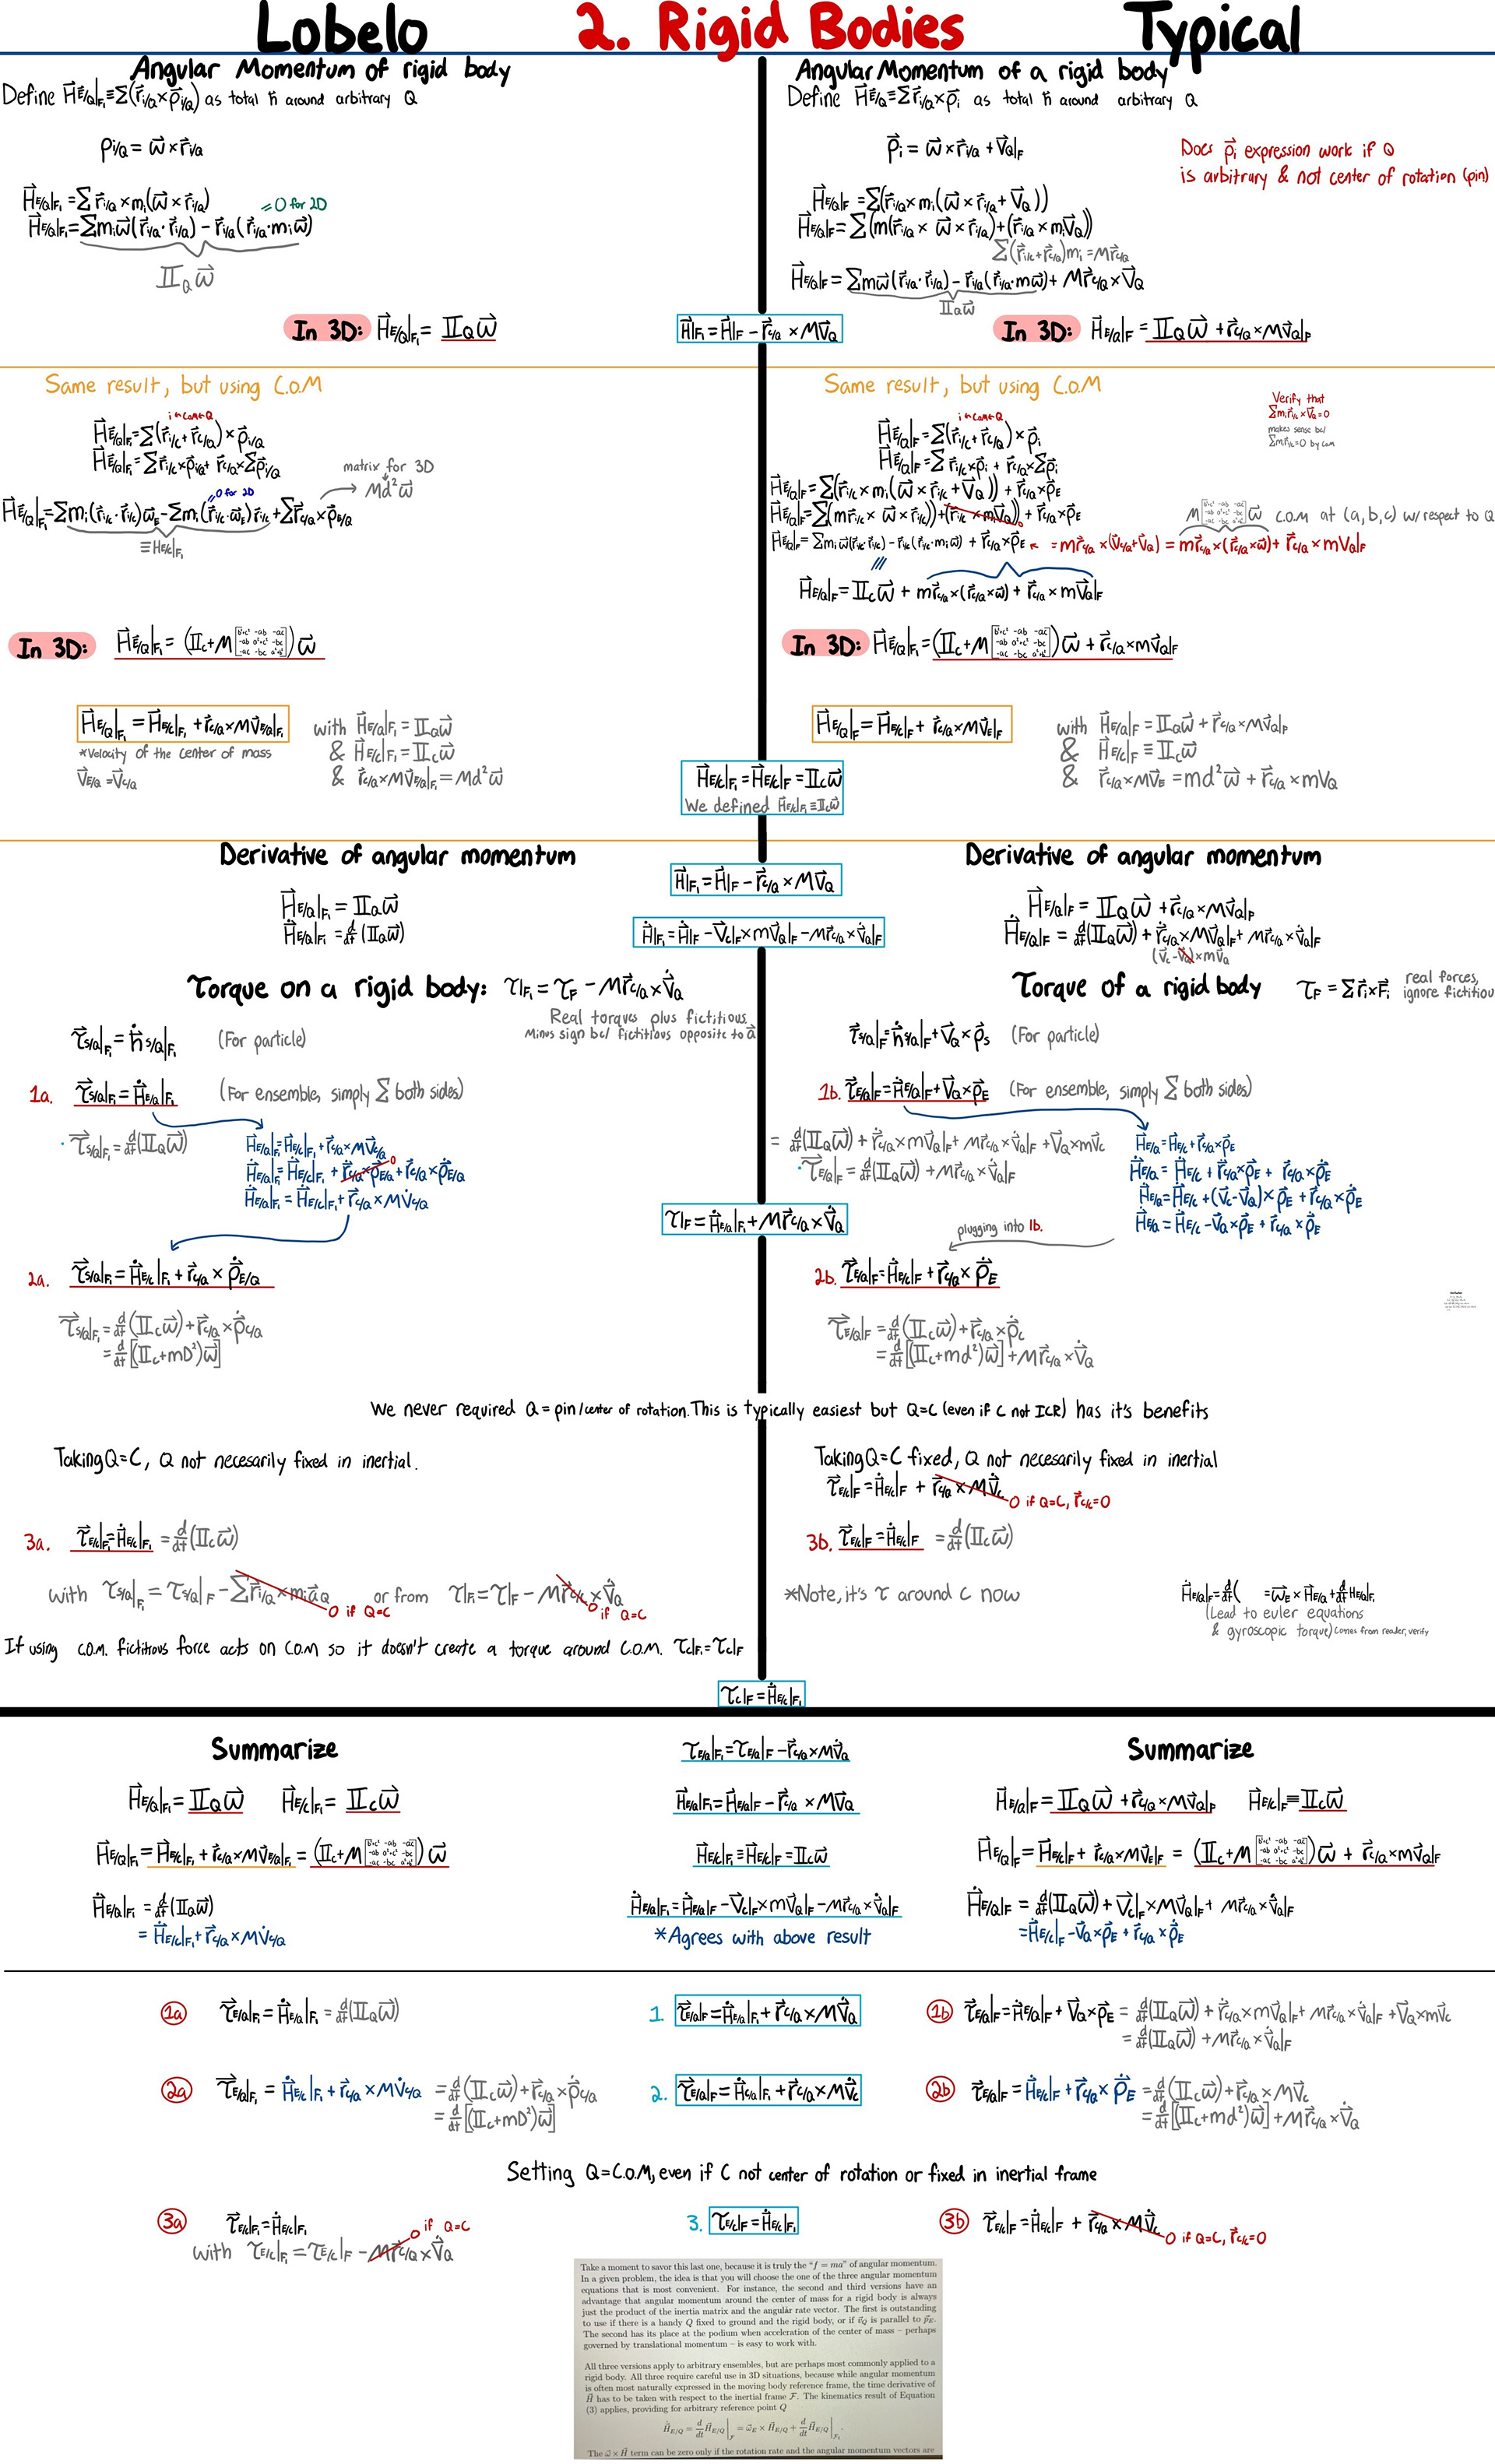 Lobelo
2. Rigid Bodies
Typical
Angular Momentum of rigid body
Define H⃗E/Q|F₁ ≡ Σ(r⃗i/Q×ρ⃗i/Q) as total ℏ around arbitrary Q
ρi/Q = ω⃗×r⃗i/Q
H⃗E/Q|F₁ = Σ r⃗i/Q × mi(ω⃗ × r⃗i/Q)
= 0 for 2D
H⃗E/Q|F₁ = Σmiω⃗(r⃗i/Q·r⃗i/Q) − r⃗i/Q(r⃗i/Q·miω⃗)
IIQ ω⃗
In 3D: H⃗E/Q|F₁ = IIQ ω⃗
Angular Momentum of a rigid body
Define H⃗E/Q ≡ Σ r⃗i/Q×ρ⃗i as total ℏ around arbitrary Q
ρ⃗i = ω⃗×r⃗i/Q + V⃗Q|F
Does ρ⃗i expression work if Q
is arbitrary & not center of rotation (pin)
H⃗E/Q|F = Σ(r⃗i/Q×mi(ω⃗×r⃗i/Q + V⃗Q))
H⃗E/Q|F = Σ(m(r⃗i/Q × ω⃗ × r⃗i/Q) + (r⃗i/Q × miV⃗Q))
Σ(r⃗i/c + r⃗c/Q)mi = Mr⃗c/Q
H⃗E/Q|F = Σmω⃗(r⃗i/Q·r⃗i/Q) − r⃗i/Q(r⃗i/Q·mω⃗) + Mr⃗c/Q × V⃗Q
IIQω⃗
H⃗|F₁ = H⃗|F − r⃗c/Q × MV⃗Q
In 3D: H⃗E/Q|F = IIQ ω⃗ + r⃗c/Q × MV⃗Q|F
Same result, but using C.O.M
i←com←Q
H⃗E/Q|F₁ = Σ(r⃗i/c + r⃗c/Q) × ρ⃗i/Q
H⃗E/Q|F₁ = Σr⃗i/c×ρ⃗i/Q + r⃗c/Q×Σρ⃗i/Q
matrix for 3D
Md²ω⃗
= 0 for 2D
H⃗E/Q|F₁ = Σmi(r⃗i/c·r⃗i/c)ω⃗E − Σmi(r⃗i/c·ω⃗E)r⃗i/c + Σr⃗c/Q×ρ⃗E/Q
≡ HE/c|F₁
In 3D: H⃗E/Q|F₁ = (IIc + M[b²+c² -ab -ac -ab a²+c² -bc -ac -bc a²+b²]) ω⃗
H⃗E/Q|F₁ = H⃗E/c|F₁ + r⃗c/Q × MV⃗E/Q|F₁
*Velocity of the center of mass
V⃗E/Q = V⃗c/Q
with H⃗E/Q|F₁ = IIQω⃗
& H⃗E/c|F₁ = IIcω⃗
& r⃗c/Q×MV⃗E/Q|F₁ = Md²ω⃗
Same result, but using C.O.M
Verify that
Σmir⃗i/c × V⃗Q = 0
makes sense bc/
Σmir⃗i/c = 0 by com
i←com←Q
H⃗E/Q|F = Σ(r⃗i/c + r⃗c/Q) × ρ⃗i
H⃗E/Q|F = Σ r⃗i/c×ρ⃗i + r⃗c/Q×Σρ⃗i
H⃗E/Q|F = Σ(r⃗i/c × mi(ω⃗ × r⃗i/c + V⃗Q)) + r⃗c/Q×ρ⃗E
H⃗E/Q|F = Σ(mr⃗i/c × ω⃗ × r⃗i/c)) + (r⃗i/c × miV⃗Q) 0 + r⃗c/Q×ρ⃗E
M[b²+c² -ab -ac -ab a²+c² -bc -ac -bc a²+b²] ω⃗ C.O.M at (a,b,c) w/ respect to Q
H⃗E/Q|F = Σ miω⃗(r⃗i/c·r⃗i/c) − r⃗i/c(r⃗i/c·miω⃗) + r⃗c/Q×ρ⃗E ← = mr⃗c/Q × (V⃗c/Q + V⃗Q) = mr⃗c/Q×(r⃗c/Q×ω⃗) + r⃗c/Q × mVQ|F
H⃗E/Q|F = IIcω⃗ + mr⃗c/Q×(r⃗c/Q×ω⃗) + r⃗c/Q × mV⃗Q|F
In 3D: H⃗E/Q|F₁ = (IIc + M[b²+c² -ab -ac -ab a²+c² -bc -ac -bc a²+b²]) ω⃗ + r⃗c/Q×mV⃗Q|F
H⃗E/Q|F = H⃗E/c|F + r⃗c/Q × MV⃗E|F
with H⃗E/Q|F = IIQω⃗ + r⃗c/Q × MV⃗Q|F
& H⃗E/c|F ≡ IIcω⃗
& r⃗c/Q×MV⃗E = md²ω⃗ + r⃗c/Q × mVQ
H⃗E/c|F₁ = H⃗E/c|F = IIcω⃗
We defined H⃗E/c|F₁ ≡ IIcω⃗
Derivative of angular momentum
H⃗E/Q|F₁ = IIQω⃗
Ḣ⃗E/Q|F₁ = d/dt (IIQω⃗)
H⃗|F₁ = H⃗|F − r⃗c/Q × MV⃗Q
Ḣ⃗|F₁ = Ḣ⃗|F − V⃗c|F×mV⃗Q|F − Mr⃗c/Q×V̇⃗Q|F
Derivative of angular momentum
H⃗E/Q|F = IIQω⃗ + r⃗c/Q×MV⃗Q|F
Ḣ⃗E/Q|F = d/dt(IIQω⃗) + ṙ⃗c/Q×MV⃗Q|F + Mr⃗c/Q×V̇⃗Q|F
(V⃗c − V⃗Q)×mV⃗Q
Torque on a rigid body: τ|F₁ = τF − Mr⃗c/Q×V̇⃗Q
Real torques plus fictitious.
Minus sign bc/ fictitious opposite to a⃗
τ⃗s/Q|F₁ = ḣ⃗s/Q|F₁ (For particle)
1a. τ⃗s/Q|F₁ = Ḣ⃗E/Q|F₁ (For ensemble, simply Σ both sides)
· τ⃗s/Q|F₁ = d/dt(IIQω⃗)
H⃗E/Q|F₁ = H⃗E/c|F₁ + r⃗c/Q×MV⃗c/Q
Ḣ⃗E/Q|F₁ = Ḣ⃗E/c|F₁ + ṙ⃗c/Q×ρ⃗E/Q 0 + r⃗c/Q×ρ̇⃗E/Q
Ḣ⃗E/Q|F₁ = Ḣ⃗E/c|F₁ + r⃗c/Q × MV̇c/Q
2a. τ⃗s/Q|F₁ = Ḣ⃗E/c|F₁ + r⃗c/Q × ρ̇⃗E/Q
τ⃗s/Q|F₁ = d/dt(IIcω⃗) + r⃗c/Q×ρ̇⃗c/Q
= d/dt[(IIc+mD²)ω⃗]
Torque of a rigid body τF = Σr⃗i×F⃗i real forces,
ignore fictitiou
τ⃗s/Q|F = ḣ⃗s/Q|F + V⃗Q × ρ⃗s (For particle)
1b. τ⃗E/Q|F = Ḣ⃗E/Q|F + V⃗Q×ρ⃗E (For ensemble, simply Σ both sides)
= d/dt(IIQω⃗) + ṙ⃗c/Q × mV⃗Q|F + Mr⃗c/Q×V̇⃗Q|F + V⃗Q×mV⃗c
· τ⃗E/Q|F = d/dt(IIQω⃗) + Mr⃗c/Q×V̇⃗Q|F
H⃗E/Q = H⃗E/c + r⃗c/Q×ρ⃗E
Ḣ⃗E/Q = Ḣ⃗E/c + ṙ⃗c/Q×ρ⃗E + r⃗c/Q×ρ̇⃗E
Ḣ⃗E/Q = Ḣ⃗E/c + (V⃗c−V⃗Q)×ρ⃗E + r⃗c/Q×ρ̇⃗E
Ḣ⃗E/Q = Ḣ⃗E/c − V⃗Q×ρ⃗E + r⃗c/Q × ρ̇⃗E
τ⃗|F = Ḣ⃗E/Q|F₁ + Mr⃗c/Q × V̇⃗Q
plugging into 1b.
2b. τ⃗E/Q|F = Ḣ⃗E/c|F + r⃗c/Q× ρ̇⃗E
τ⃗E/Q|F = d/dt(IIcω⃗) + r⃗c/Q×ρ̇⃗c
= d/dt[(IIc+md²)ω⃗] + Mr⃗c/Q × V̇⃗Q
We never required Q = pin/center of rotation. This is typically easiest but Q=C (even if C not ICR) has it's benefits
Taking Q=C, Q not necesarily fixed in inertial.
Taking Q=C fixed, Q not necesarily fixed in inertial
τ⃗E/c|F = Ḣ⃗E/c|F + r⃗c/Q × MV̇⃗c 0 if Q=C, r⃗c/c=0
3a. τ⃗E/c|F₁ = Ḣ⃗E/c|F₁ = d/dt(IIcω⃗)
3b. τ⃗E/c|F = Ḣ⃗E/c|F = d/dt(IIcω⃗)
with τs/Q|F₁ = τs/Q|F − Σr⃗i/Q×mia⃗Q 0 if Q=C or from τ|F₁ = τ|F − Mr⃗c/Q×V̇⃗Q 0 if Q=C
*Note, it's τ around C now
Ḣ⃗E/Q|F = d/dt( = ω⃗E × H⃗E/Q + d/dt HE/Q|F₁
(Lead to euler equations
& gyroscopic torque) comes from reader, verify
If using C.O.M. fictitious force acts on C.O.M so it doesn't create a torque around C.O.M. τc|F₁ = τc|F
τ⃗c|F = Ḣ⃗E/c|F₁
Summarize
H⃗E/Q|F₁ = IIQω⃗ H⃗E/c|F₁ = IIcω⃗
H⃗E/Q|F₁ = H⃗E/c|F₁ + r⃗c/Q×MV⃗E/Q|F₁ = (IIc+M[b²+c² -ab -ac -ab a²+c² -bc -ac -bc a²+b²]) ω⃗
Ḣ⃗E/Q|F₁ = d/dt(IIQω⃗)
= Ḣ⃗E/c|F₁ + r⃗c/Q × MV̇c/Q
τ⃗E/Q|F₁ = τ⃗E/Q|F − r⃗c/Q×MV̇⃗Q
H⃗E/Q|F₁ = H⃗E/Q|F − r⃗c/Q × MV⃗Q
H⃗E/c|F₁ ≡ H⃗E/c|F = IIcω⃗
Ḣ⃗E/Q|F₁ = Ḣ⃗E/Q|F − V⃗c|F×mV⃗Q|F − Mr⃗c/Q×V̇⃗Q|F
*Agrees with above result
Summarize
H⃗E/Q|F = IIQω⃗ + r⃗c/Q×MV⃗Q|F H⃗E/c|F ≡ IIcω⃗
H⃗E/Q|F = H⃗E/c|F + r⃗c/Q×MV⃗E|F = (IIc+M[b²+c² -ab -ac -ab a²+c² -bc -ac -bc a²+b²]) ω⃗ + r⃗c/Q×mV⃗Q|F
Ḣ⃗E/Q|F = d/dt(IIQω⃗) + V⃗c|F×MV⃗Q|F + Mr⃗c/Q×V̇⃗Q|F
= Ḣ⃗E/c|F − V⃗Q×ρ⃗E + r⃗c/Q × ρ̇⃗E
1a τ⃗E/Q|F₁ = Ḣ⃗E/Q|F₁ = d/dt(IIQω⃗)
1. τ⃗E/Q|F = Ḣ⃗E/Q|F₁ + r⃗c/Q×MV̇⃗Q
1b τ⃗E/Q|F = Ḣ⃗E/Q|F + V⃗Q×ρ⃗E = d/dt(IIQω⃗) + ṙ⃗c/Q×mV⃗Q|F + Mr⃗c/Q×V̇⃗Q|F + V⃗Q×mV⃗c
= d/dt(IIQω⃗) + Mr⃗c/Q×V̇⃗Q|F
2a τ⃗E/Q|F₁ = Ḣ⃗E/c|F₁ + r⃗c/Q × MV̇c/Q = d/dt(IIcω⃗) + r⃗c/Q×ρ̇⃗c/Q
= d/dt[(IIc+mD²)ω⃗]
2. τ⃗E/Q|F = Ḣ⃗c/Q|F₁ + r⃗c/Q×MV̇⃗c
2b τ⃗E/Q|F = Ḣ⃗E/c|F + r⃗c/Q× ρ̇⃗E = d/dt(IIcω⃗) + r⃗c/Q × MV̇c
= d/dt[(IIc+md²)ω⃗] + Mr⃗c/Q × V̇⃗Q
Setting Q=C.O.M, even if C not center of rotation or fixed in inertial frame
3a τ⃗E/c|F₁ = Ḣ⃗E/c|F₁
with τE/c|F₁ = τE/c|F − Mr⃗c/Q×V̇⃗Q 0 if Q=C
3. τ⃗E/c|F = Ḣ⃗E/c|F₁
3b τ⃗E/c|F = Ḣ⃗E/c|F + r⃗c/Q × MV̇⃗c 0 if Q=C, r⃗c/c=0
Take a moment to savor this last one, because it is truly the "f = ma" of angular momentum.
In a given problem, the idea is that you will choose the one of the three angular momentum
equations that is most convenient. For instance, the second and third versions have an
advantage that angular momentum around the center of mass for a rigid body is always
just the product of the inertia matrix and the angular rate vector. The first is outstanding
to use if there is a handy Q fixed to ground and the rigid body, or if v⃗Q is parallel to p⃗E.
The second has its place at the podium when acceleration of the center of mass – perhaps
governed by translational momentum – is easy to work with.
All three versions apply to arbitrary ensembles, but are perhaps most commonly applied to a
rigid body. All three require careful use in 3D situations, because while angular momentum
is often most naturally expressed in the moving body reference frame, the time derivative of
H⃗ has to be taken with respect to the inertial frame F. The kinematics result of Equation
(3) applies, providing for arbitrary reference point Q
Ḣ⃗E/Q = d/dt H⃗E/Q|F = ω⃗E × H⃗E/Q + d/dt H⃗E/Q|F₁.
The ω⃗ × H⃗ term can be zero only if the rotation rate and the angular momentum vectors are